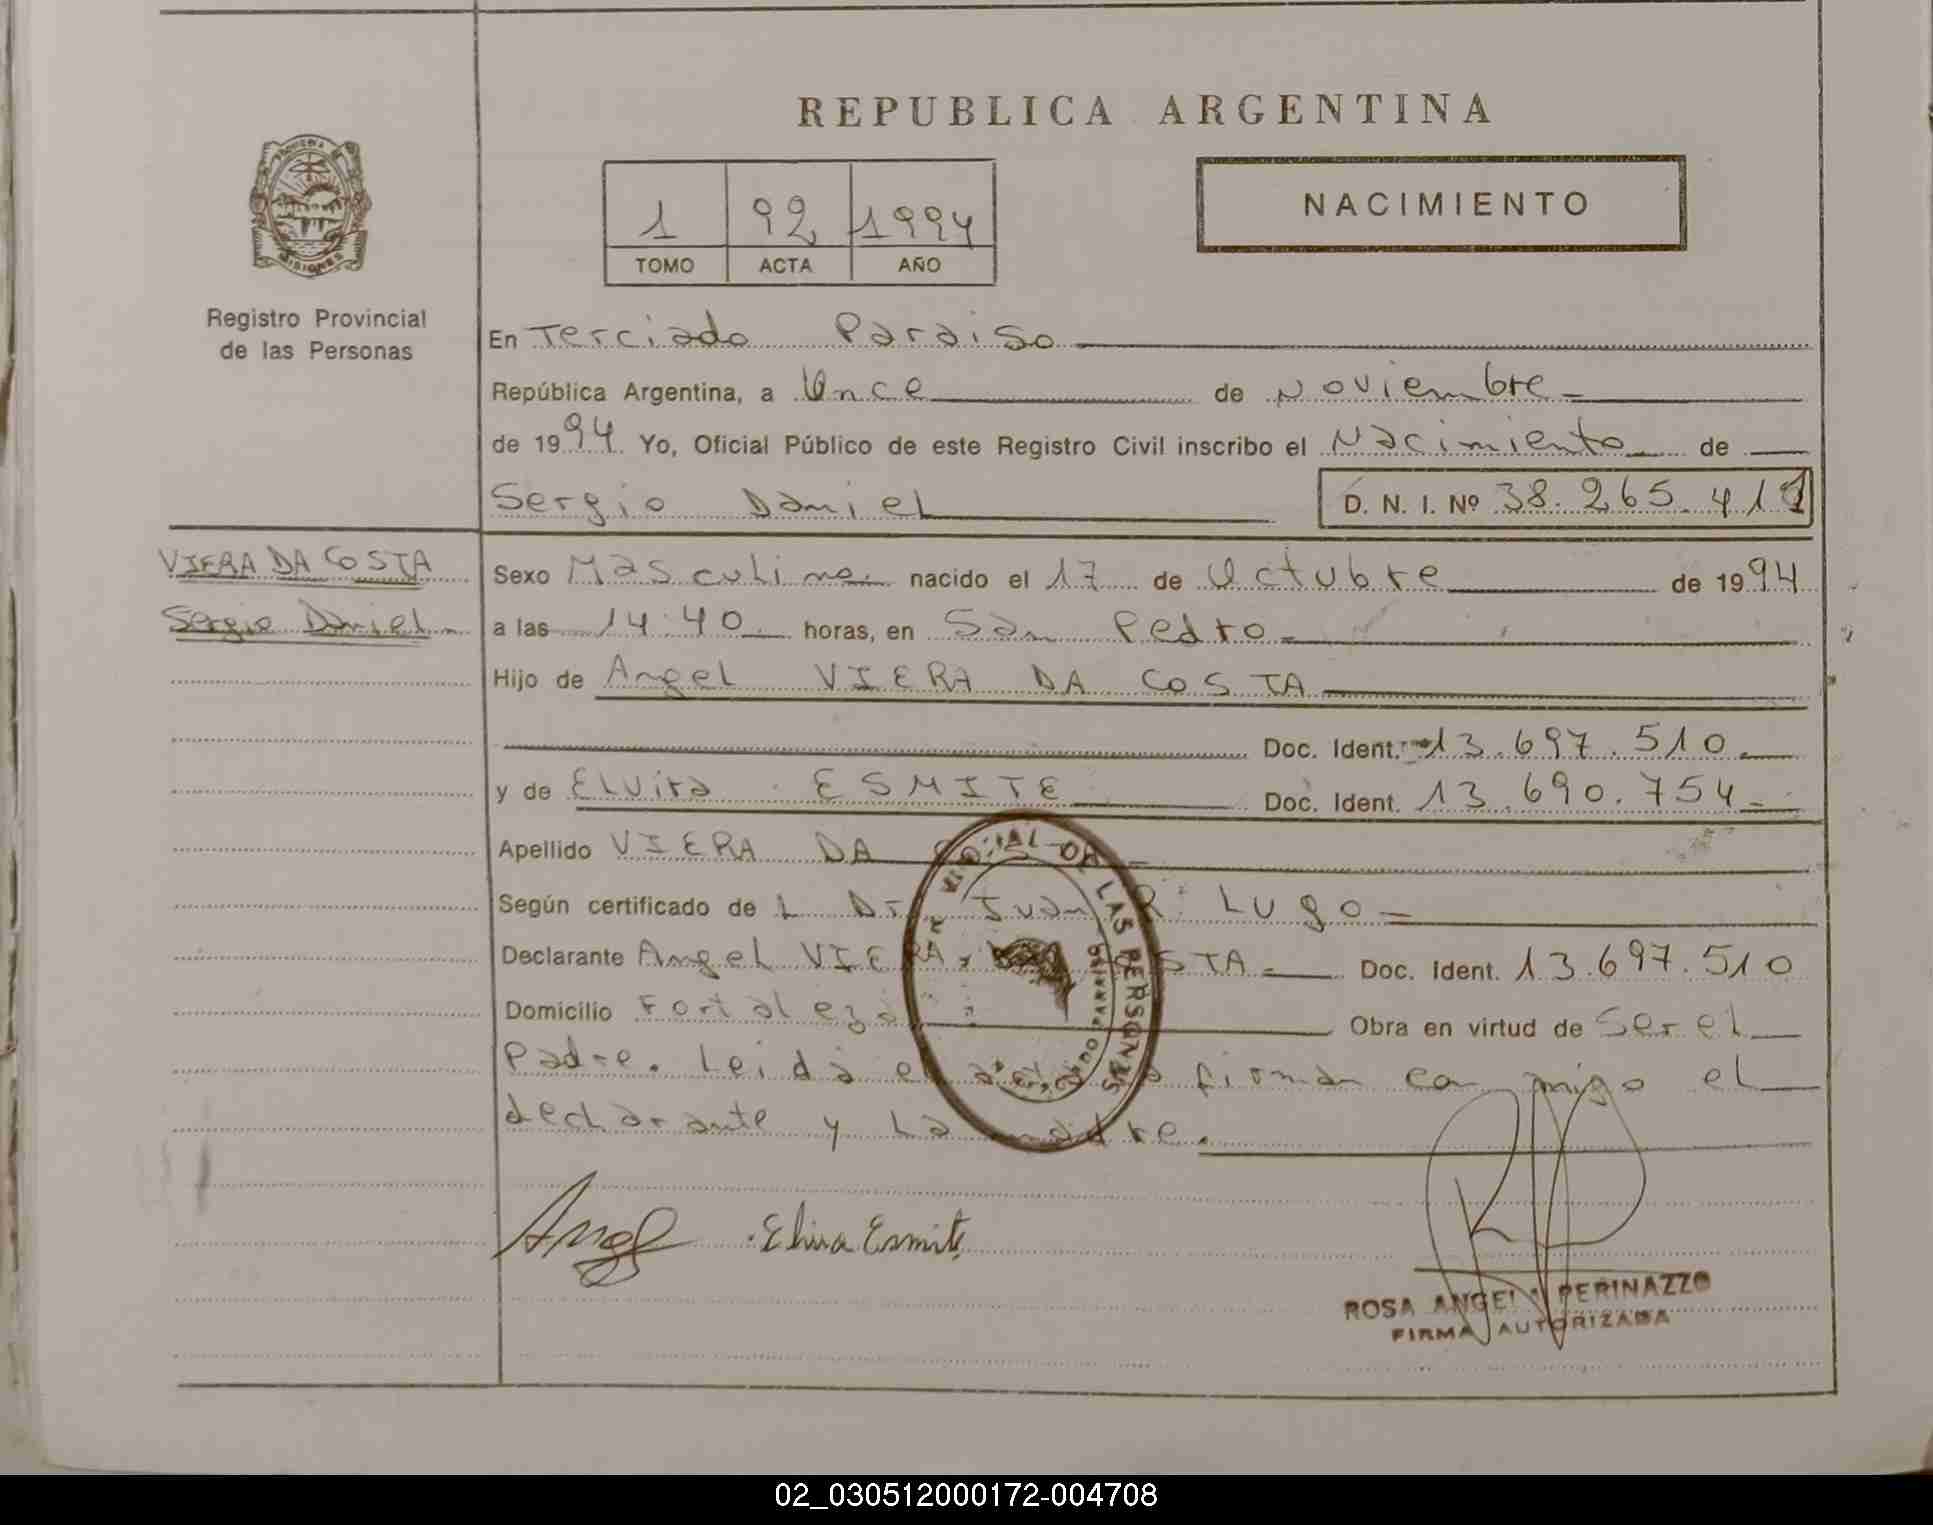 REPUBLICA ARGENTINA
NACIMIENTO
1 92 1994
TOMO ACTA AÑO
MISIONES
Registro Provincial
de las Personas
En Terciado Paraiso
República Argentina, a Once de Noviembre
de 1994 Yo, Oficial Público de este Registro Civil inscribo el Nacimiento de
Sergio Daniel D. N. I. Nº 38.265.411
VIERA DA COSTA
Sergio Daniel
Sexo Masculino nacido el 17 de Octubre de 1994
a las 14:40 horas, en San Pedro
Hijo de Angel VIERA DA COSTA
Doc. Ident. 13.697.510
y de Elvira ESMITE Doc. Ident. 13.690.754
Apellido VIERA DA
Según certificado de L Dr. Juan R. Lugo
Declarante Angel VIERA STA Doc. Ident. 13.697.510
Domicilio Fortaleza Obra en virtud de Ser el
Padre. Leida el firman conmigo el
declarante y la madre.
LAS PERSONAS
Angel Elvira Esmite
ROSA ANGELA PERINAZZO
FIRMA AUTORIZADA
02_030512000172-004708